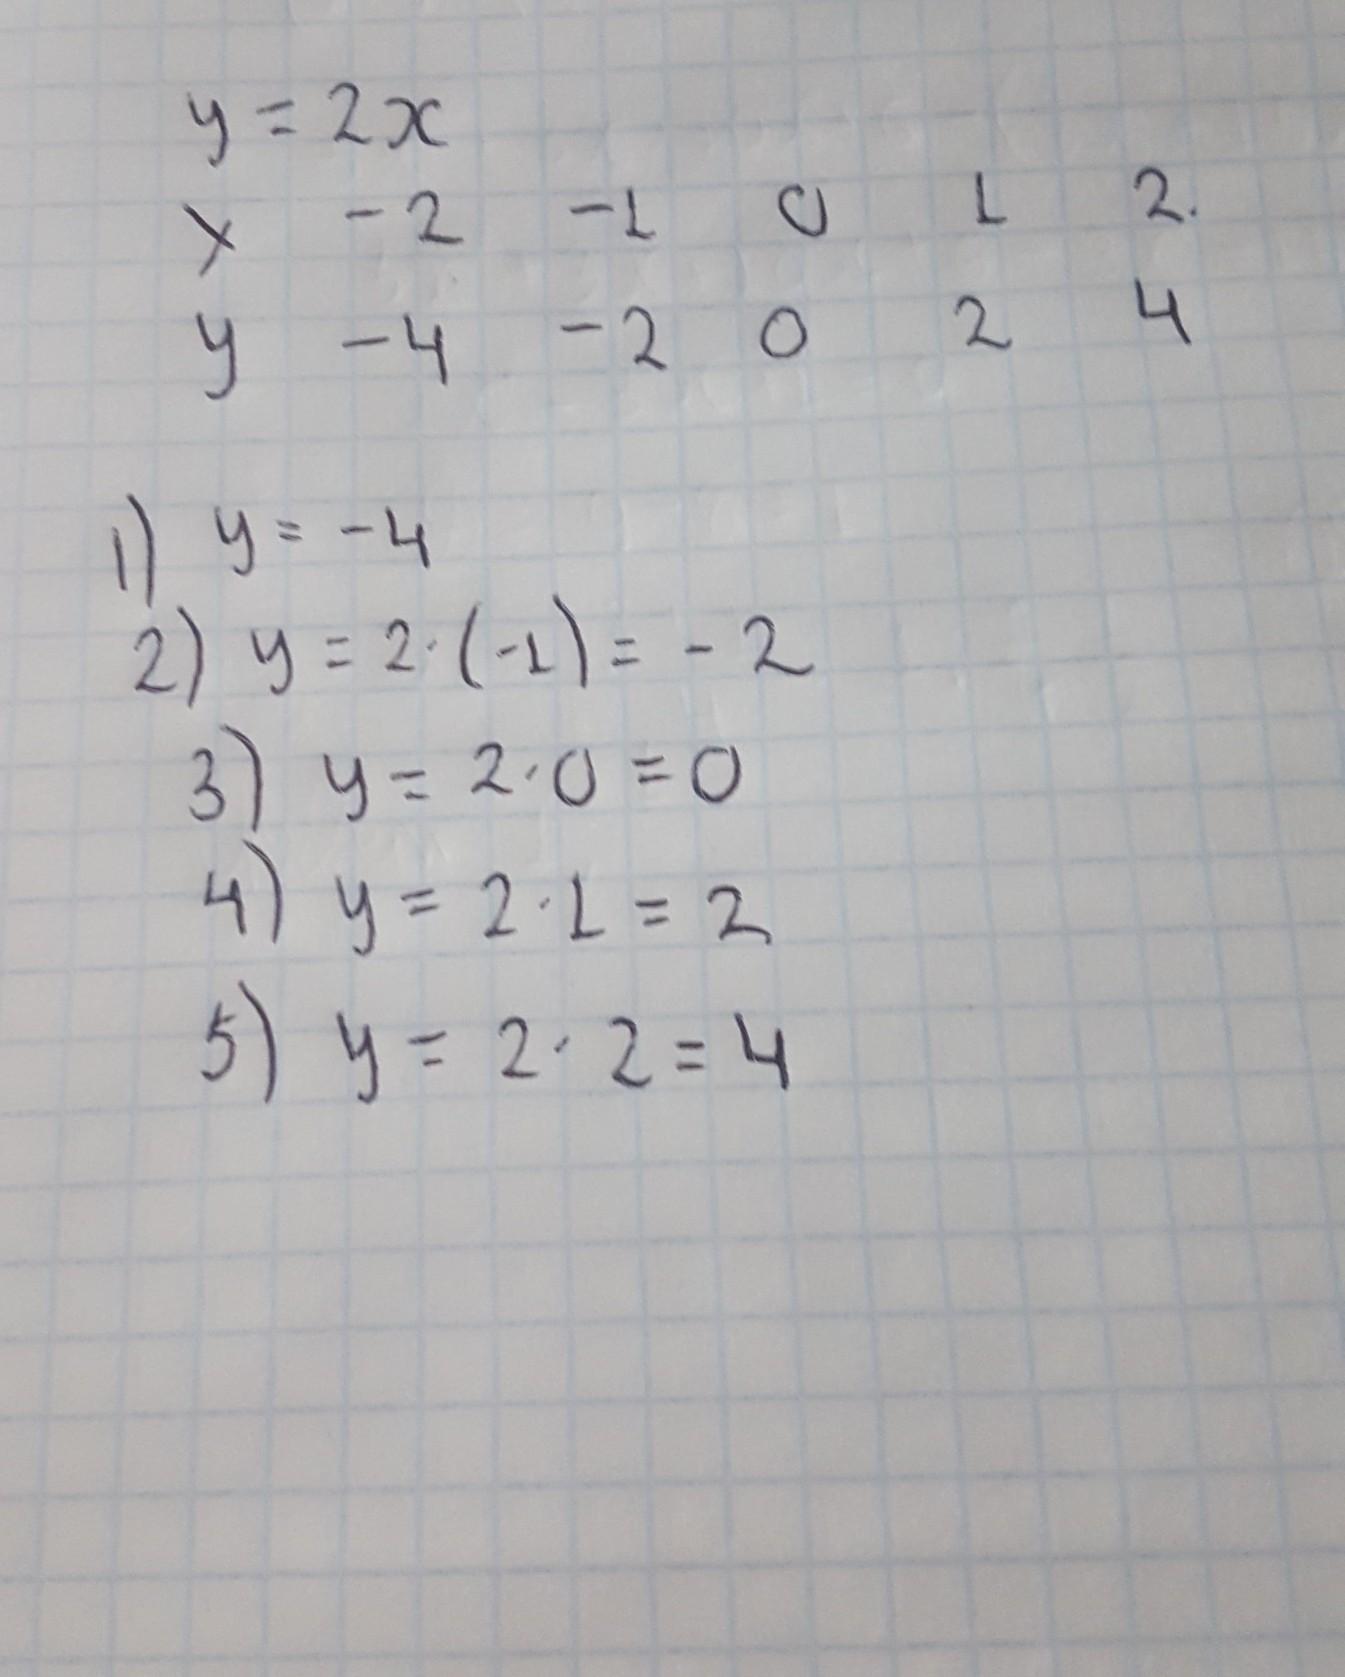 y = 2x
x -2 -1 0 1 2.
y -4 -2 0 2 4
1) y = -4
2) y = 2·(-1) = -2
3) y = 2·0 = 0
4) y = 2·1 = 2
5) y = 2·2 = 4